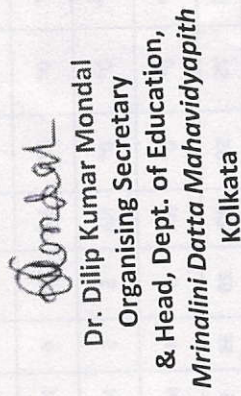 Dr. Dilip Kumar Mondal
Organising Secretary
& Head, Dept. of Education,
Mrinalini Datta Mahavidyapith
Kolkata